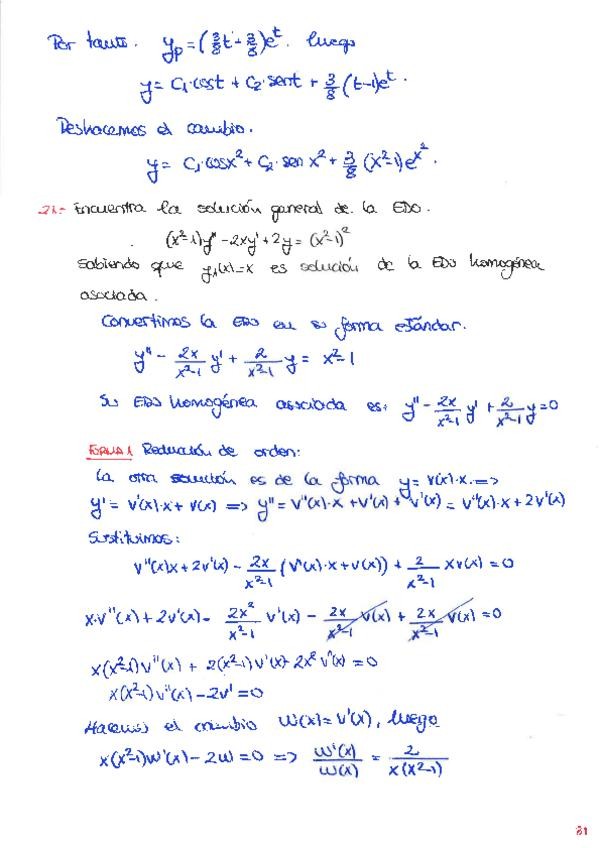 Por tanto. y_p = (3/8 t - 3/8)e^t. luego
y = C₁·cost + C₂·sent + 3/8 (t-1)e^t.
Deshacemos el cambio.
y = C₁·cosx² + C₂·sen x² + 3/8 (x²-1)e^{x²}.
21.- Encuentra la solución general de la EDO.
(x²-1)y'' - 2xy' + 2y = (x²-1)²
Sabiendo que y₁(x)=x es solución de la EDO homogénea
asociada.
Convertimos la EDO en su forma estándar.
y'' - 2x/(x²-1) y' + 2/(x²-1) y = x²-1
Su EDO homogénea asociada es: y'' - 2x/(x²-1) y' + 2/(x²-1) y = 0
FORMA 1 Reducción de orden:
La otra solución es de la forma y = v(x)·x. =>
y' = v'(x)·x + v(x) => y'' = v''(x)·x + v'(x) + v'(x) = v''(x)·x + 2v'(x)
Sustituimos:
v''(x)x + 2v'(x) - 2x/(x²-1) (v'(x)·x + v(x)) + 2/(x²-1) xv(x) = 0
x·v''(x) + 2v'(x) - 2x²/(x²-1) v'(x) - 2x/(x²-1) v(x) + 2x/(x²-1) v(x) = 0
x(x²-1)v''(x) + 2(x²-1)v'(x) - 2x² v'(x) = 0
x(x²-1)v''(x) - 2v' = 0
Hacemos el cambio w(x) = v'(x), luego
x(x²-1)w'(x) - 2w = 0 => w'(x)/w(x) = 2/(x(x²-1))
81